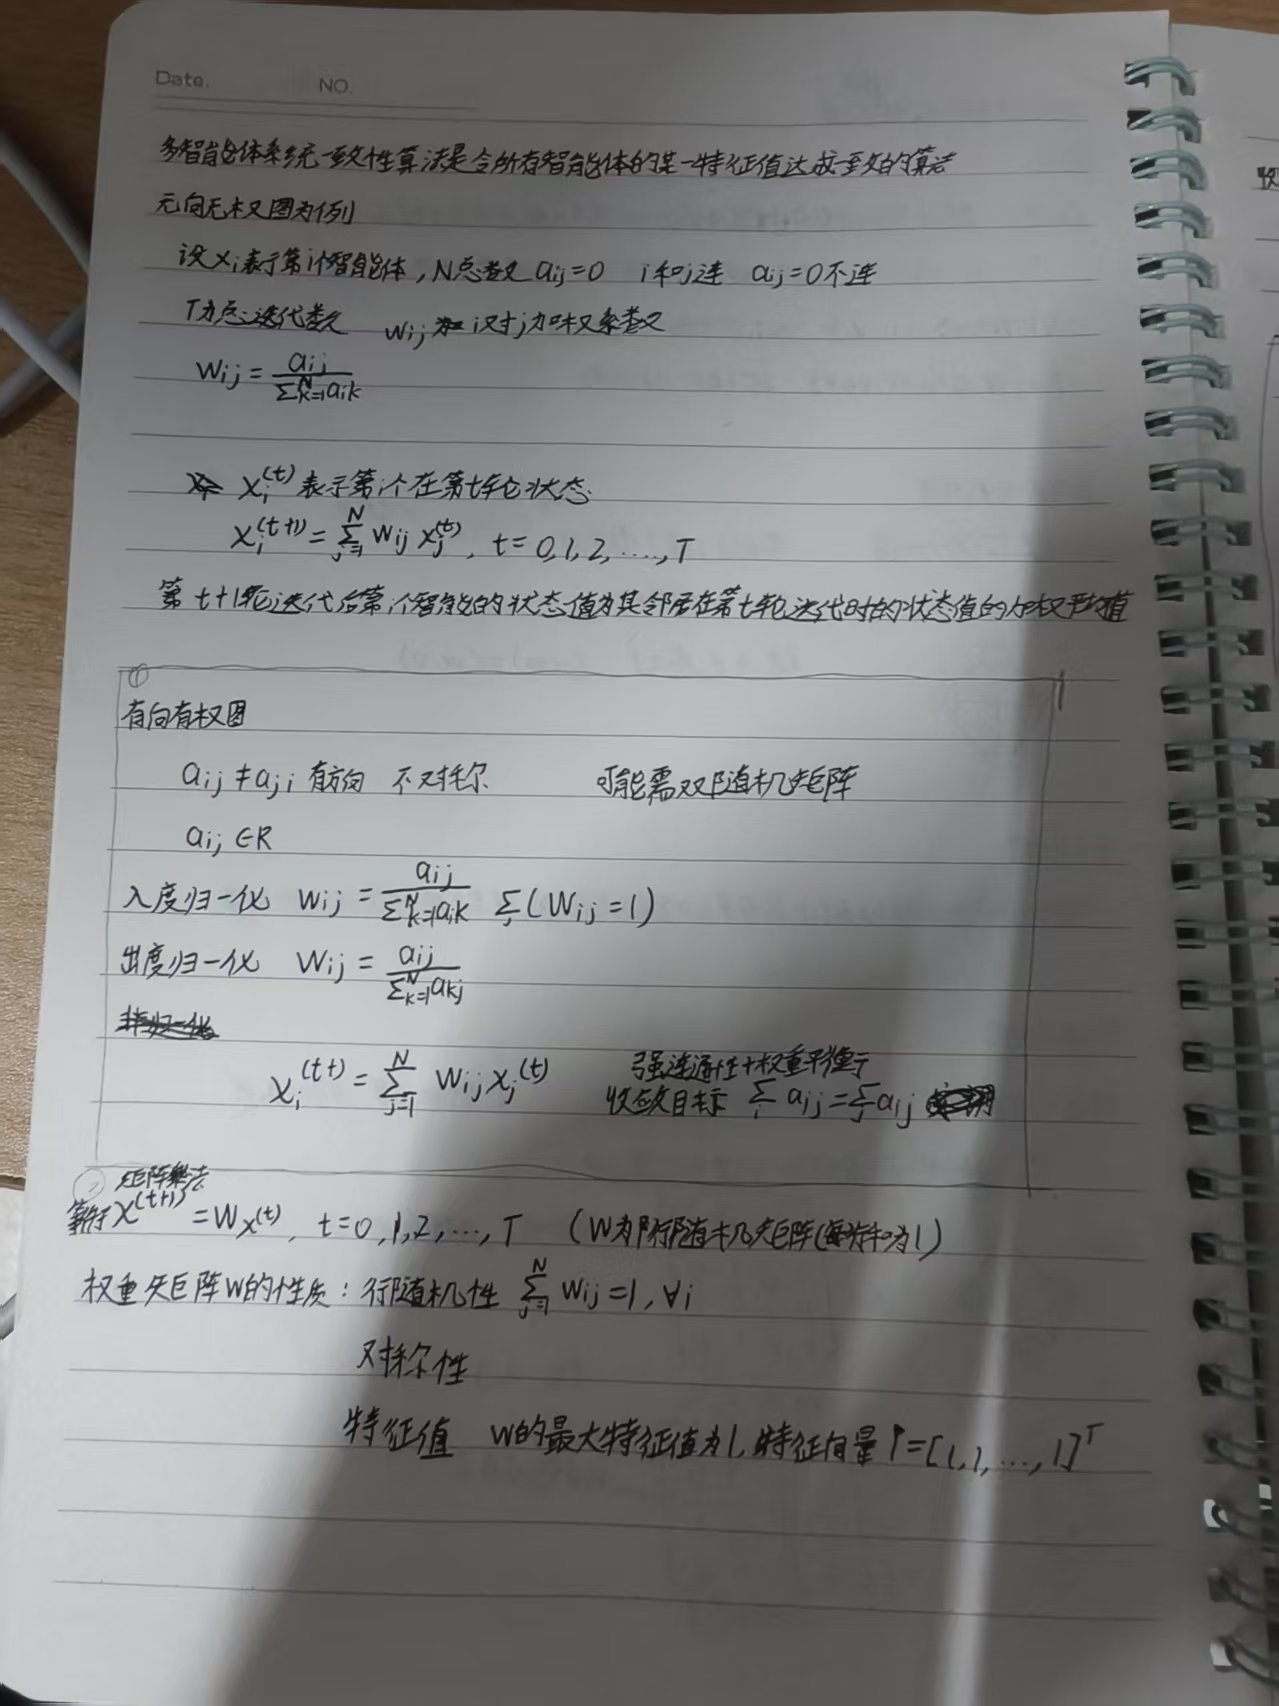 Date. NO.
多智能体系统一致性算法是令所有智能体的某一特征值达成一致的算法
无向无权图为例
设xᵢ表示第i个智能体,N总数 aᵢⱼ=0 i和j连 aᵢⱼ=0不连
T为总迭代数 wᵢⱼ为i对j加权系数
Wᵢⱼ = aᵢⱼ / Σᴺₖ₌₁aᵢₖ
xᵢ⁽ᵗ⁾表示第i个在第t轮状态
xᵢ⁽ᵗ⁺¹⁾ = Σᴺⱼ₌₁ wᵢⱼ xⱼ⁽ᵗ⁾, t = 0,1,2,……,T
第t+1轮迭代后第i个智能的状态值为其邻居在第t轮迭代时的状态值的加权平均值
①
有向有权图
aᵢⱼ≠aⱼᵢ 有方向 不对称 可能需双随机矩阵
aᵢⱼ∈R
入度归一化 Wᵢⱼ = aᵢⱼ / Σᴺₖ₌₁aᵢₖ Σⱼ(Wᵢⱼ=1)
出度归一化 Wᵢⱼ = aᵢⱼ / Σᴺₖ₌₁aₖⱼ
非归一化
xᵢ⁽ᵗ⁺⁾ = Σᴺⱼ₌₁ Wᵢⱼxⱼ⁽ᵗ⁾ 强连通性+权重平衡
收敛目标 Σᵢ aᵢⱼ=Σⱼ aᵢⱼ
② 矩阵乘法
等价于X⁽ᵗ⁺¹⁾ = Wx⁽ᵗ⁾, t=0,1,2,…,T (W为行随机矩阵(每行和为1)
权重矩阵W的性质: 行随机性 Σᴺⱼ₌₁ Wᵢⱼ=1,∀i
对称性
特征值 W的最大特征值为1,特征向量1=[1,1,…,1]ᵀ
收